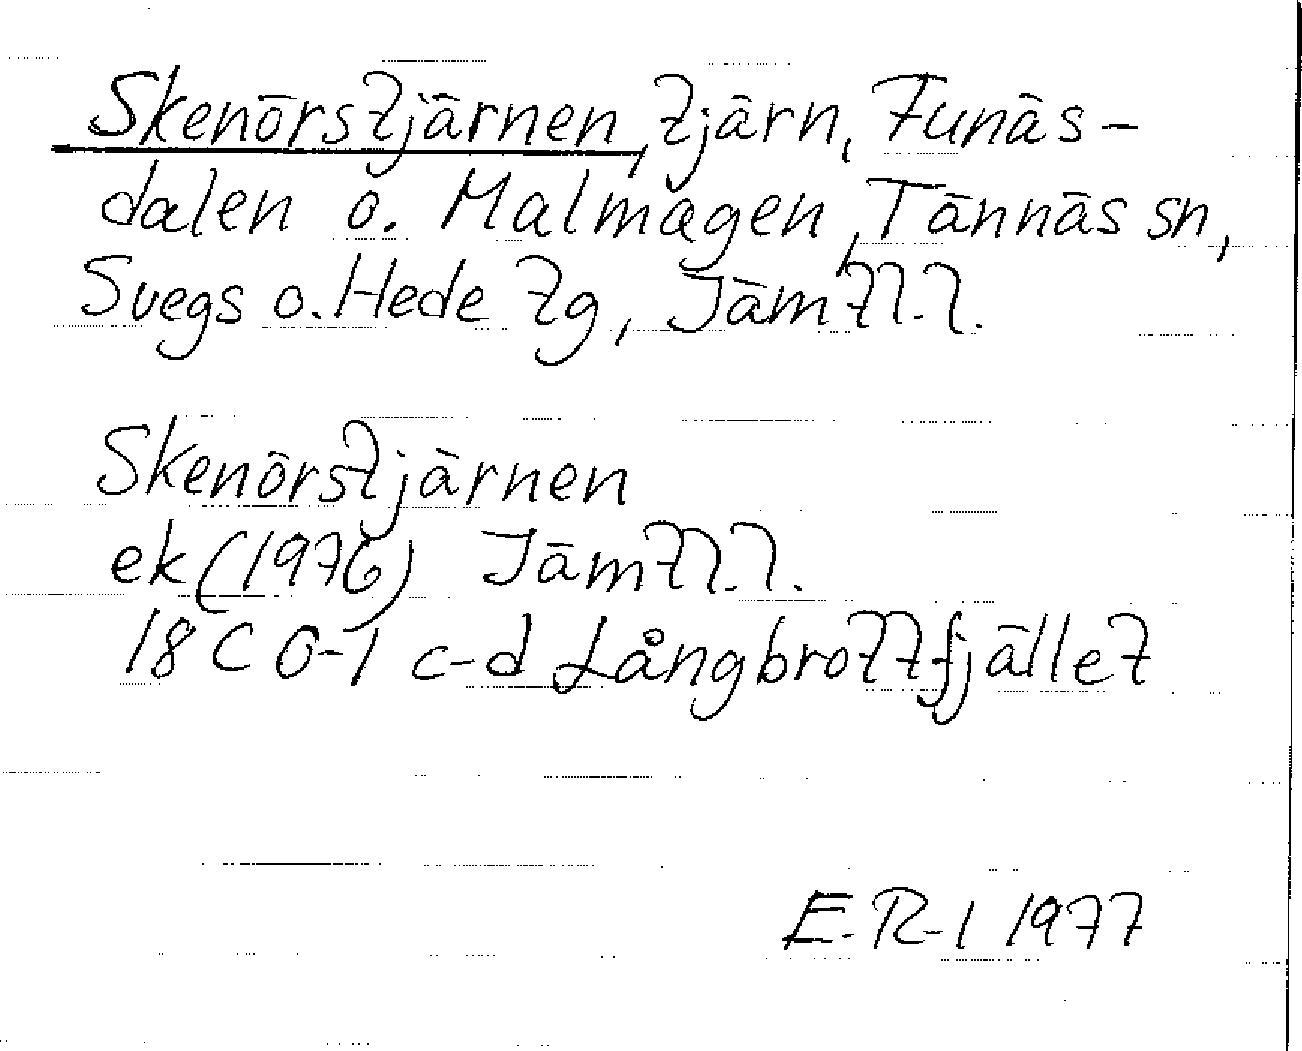 Skenörstjärnen, tjärn, Funäs-
dalen o. Malmagen, Tännäs sn,
Svegs o. Hede tg, Jämtl. l.
Skenörstjärnen
ek (1976) Jämtl. l.
18 C 0-1 c-d Långbrottfjället
E. R-l 1977